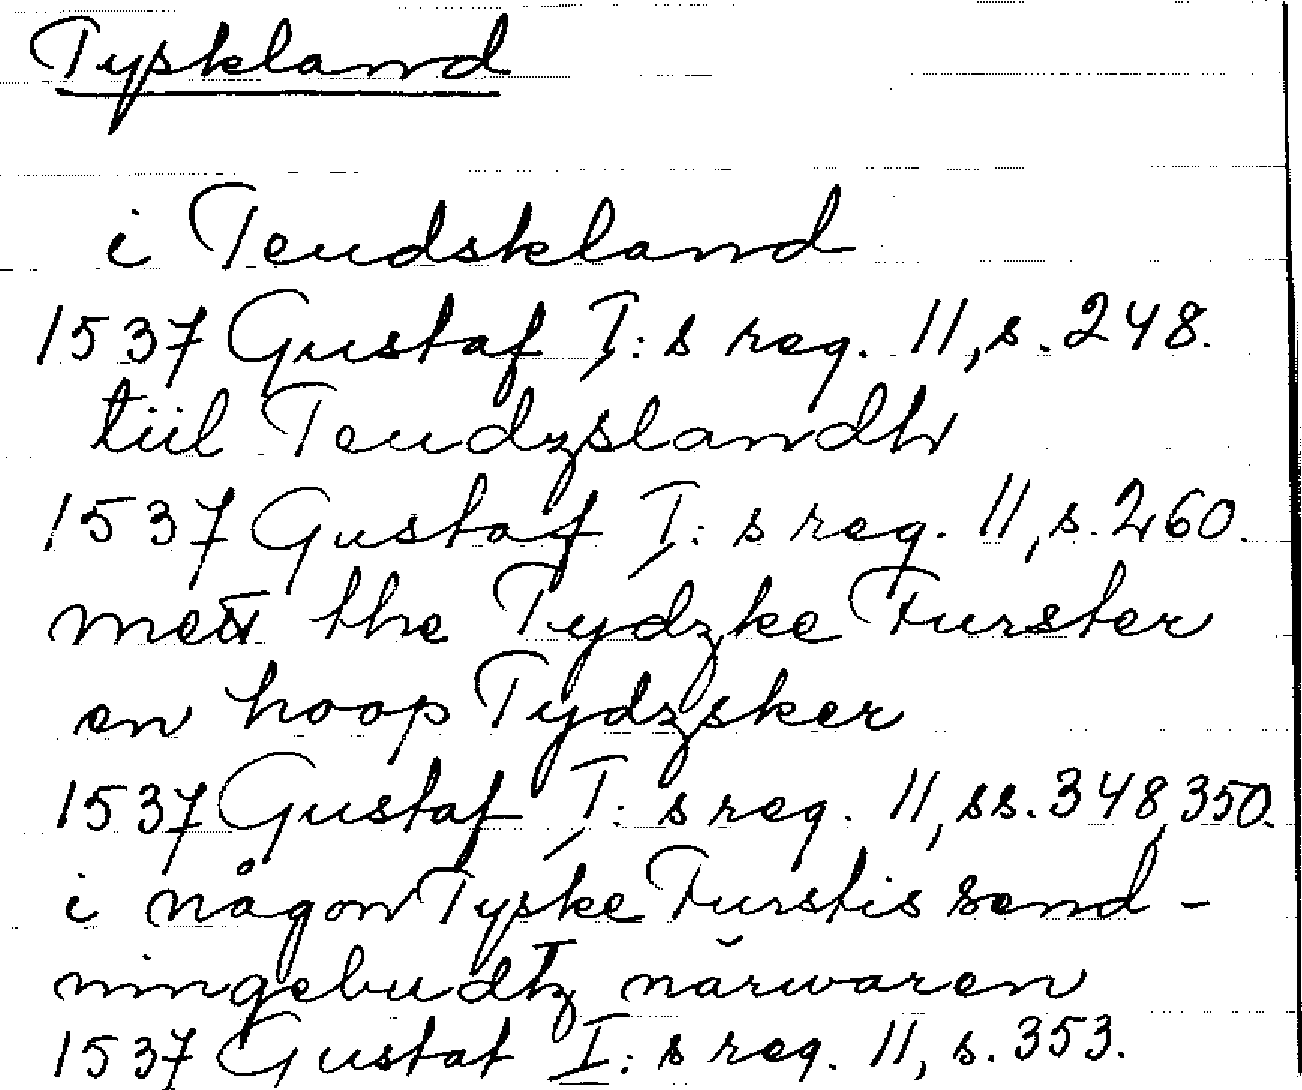 Tyskland
i Teudskland
1537 Gustaf I:s reg. 11, s. 248.
tiil Teudzslandh
1537 Gustaf I:s reg. 11, s. 260.
mett the Tydzke Furster
en hoop Tydzsker
1537 Gustaf I:s reg. 11, ss. 348, 350.
i någon Tyske Furstis send-
ningebudtz närwaren
1537 Gustaf I:s reg. 11, s. 353.